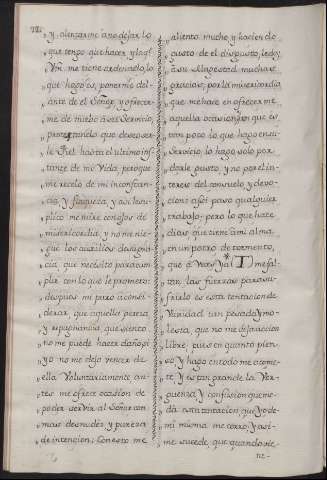 y alcançarme â no dejar lo
que tengo que hacer, y lo q̃
Vm̃. me tiene ordenado, lo
que hago es, ponerme del-
ante de el Señor, y ofrecer-
me de nuebo â su Servicio,
protestandole que deseo ser-
le fiel hasta el ultimo ins-
tante de mi Vida, pero que
me recelo de mi inconstan-
cia, y flaqueza, y assi le su-
plico me mire con ojos de
misericordia, y no me nie-
gue los auxilios de su gra-
cia, que necesito para cum-
plir con lo que le prometo:
despues mi paro â consi-
derar que aquella pereza,
y repugnancia que siento
no me puede hacer daño si
yo no me dejo vencer de
ella Voluntariamente an-
tes me ofrece ocasion de
poder servir al Señor con
mas desnudes y pureza
de intencion: Con esto me
aliento mucho y haciendo
gusto de el disgusto, le doy
â su Magestad muchas
gracias, por la misericordia
que me hace en ofrecerme
aquella ocasion, y en que es
tan poco lo que hago en su
Servicio, lo hago solo por
darle gusto, y no por el in-
teres del consuelo y devo-
cion: assi paso qualquier
trabajo: pero lo que hace
Dios que tiene â mi alma
en un potro de tormento,
que â veces ya * me fal-
tan las fuerzas para su-
frirlo es esta tentacion de
Vanidad tan pesada y mo-
lesta, que no me deja accion
libre, pues en quanto pien-
so y hago en todo me acome-
te, y es tan grande la Ver-
guenza y confusion que me
da esta tentacion que yo de
mi misma me corro, y assi
me sucede, que quando ve-